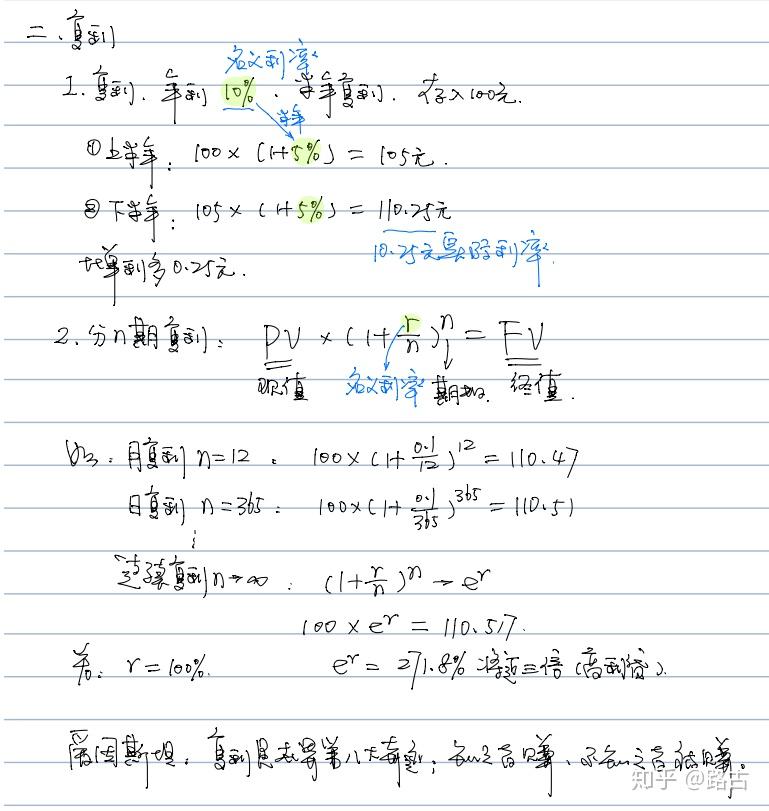 二、复利
名义利率
1. 复利、年利 10%、半年复利、存入100元.
半年
①上半年: 100 × (1+5%) = 105元.
②下半年: 105 × (1+5%) = 110.25元
10.25元 实际利率
比单利多0.25元.
2. 分n期复利: PV × (1+r/n)^n = FV
现值 名义利率 期数. 终值.
如: 月复利 n=12: 100×(1+0.1/12)^12 = 110.47
日复利 n=365: 100×(1+0.1/365)^365 = 110.51
⋮
连续复利 n→∞: (1+r/n)^n → e^r
100 × e^r = 110.517.
若: r=100%. e^r = 271.8% 接近三倍 (高利贷).
爱因斯坦: 复利是世界第八大奇迹; 知之者赚、不知之者被赚。
知乎 @路古